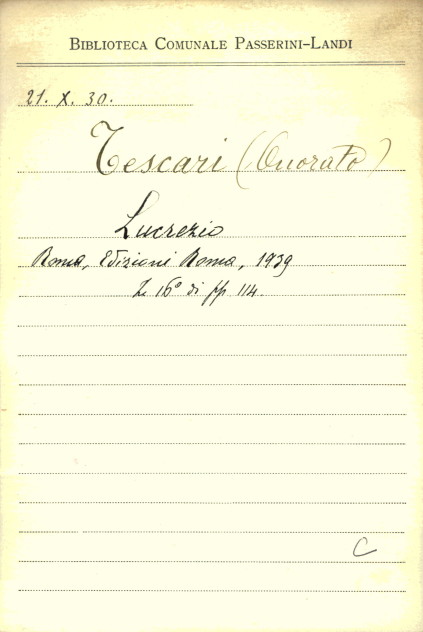 BIBLIOTECA COMUNALE PASSERINI-LANDI
21. X. 30.
Tescari (Onorato)
Lucrezio
Roma, Edizioni Roma, 1939
In 16° di pp 114.
C